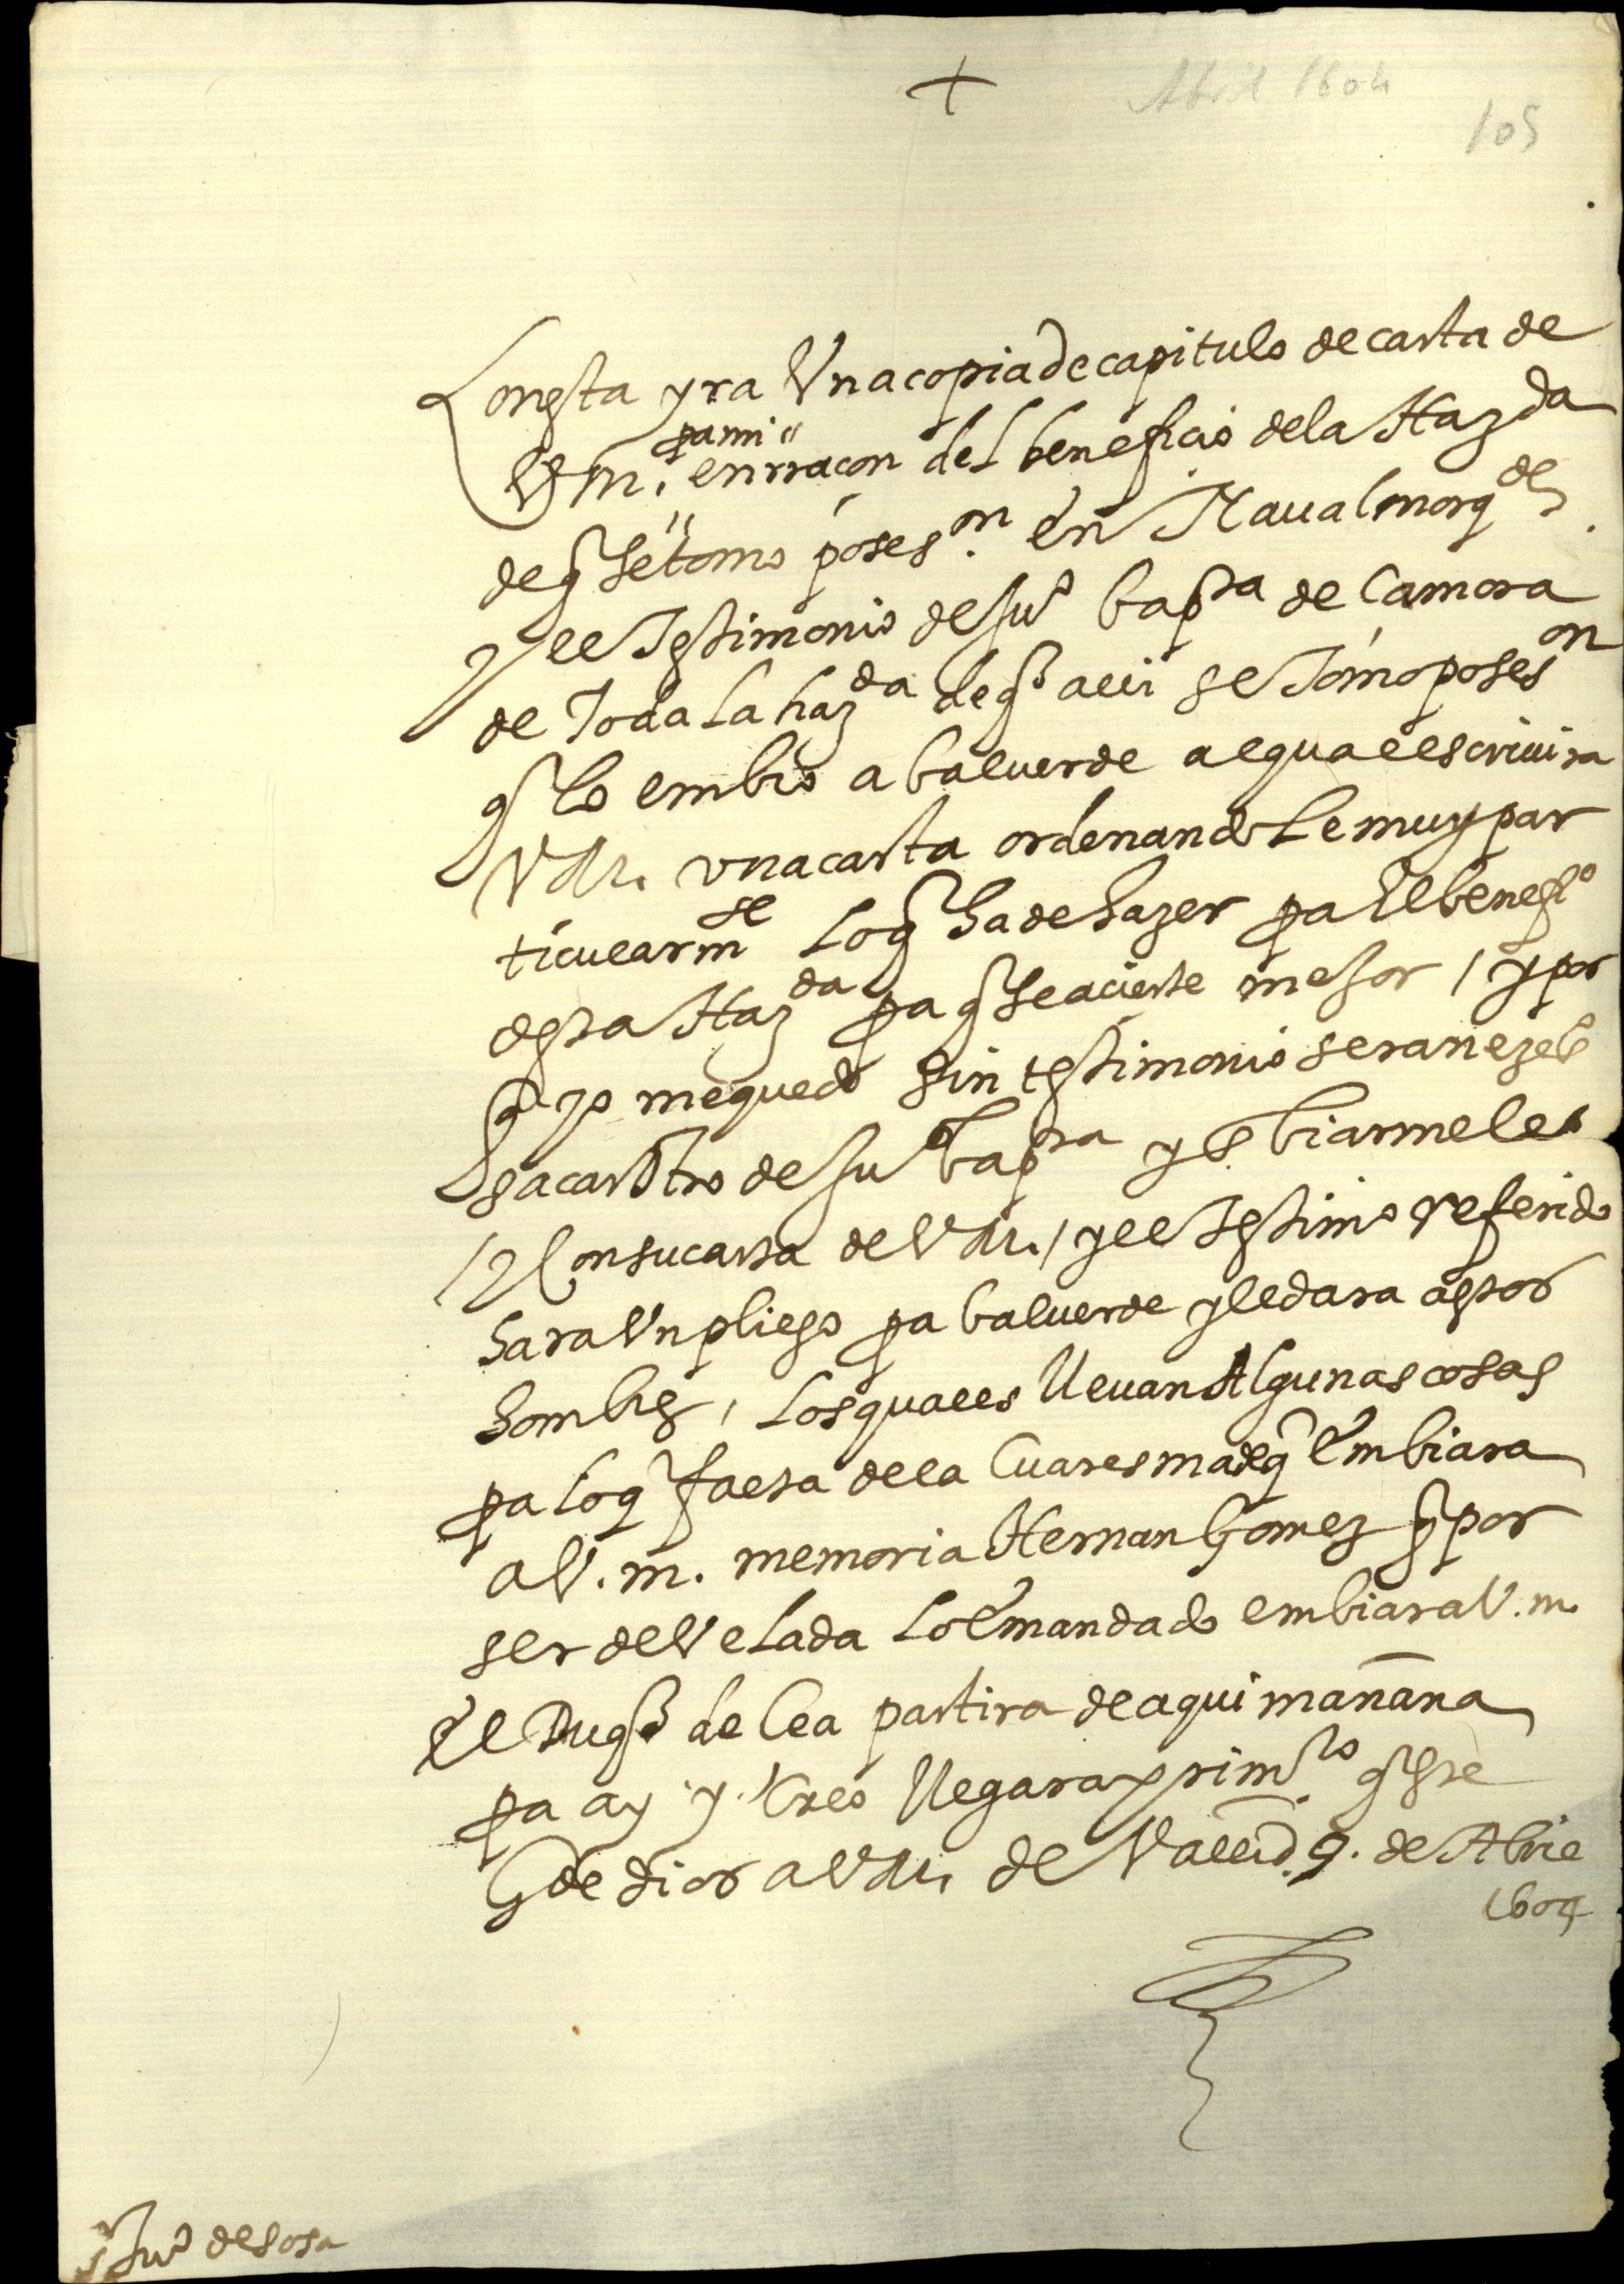 +
Abril 1604
105
Conesta yra Vna copia de capitulo de carta de
pa mi
V m. en rraçon del beneficio de la Haz.da
de q se tomo poses.on en Naualmorq.de
y el Testimonio de Ju.o bap.ta de Çamora
de Toda la haz.da de q alli se Tomo poses.on
q lo embio a balverde al qual escriuira
V M. vna carta ordenandole muy par
ticularm.te lo q ha de hazer pa El benefi.o
desta Haz.da pa q se acierte mejor / y por
q yo me quedo sin testimonio sera nez.o
sacar otro de Ju.o bap.ta y embiarmele
/ y Con su carta de V M. / y el Testim.o referido
hara Vn pliego pa balverde y le dara a estos
hombres, los quales lleuan Algunas cosas
pa lo q falta de la Cuaresma de q Embiara
a V. m. memoria Hernan Gomez q por
ser de Velada lo E mandado embiara V. m.
El Duq de Cea partira de aqui mañana
pa ay y Creo llegara prim.ro q este
G.de dios a V M. de Vall.id 9. de Abril
1604
Ju.o de sosa